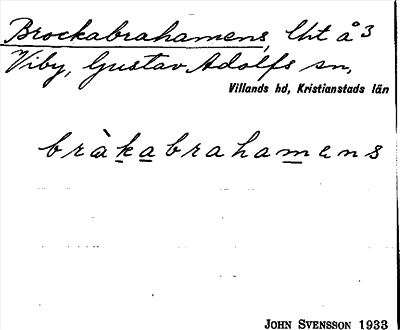 Brockabrahamens, lht å 3
Viby, Gustav Adolfs sn,
Villands hd, Kristianstads län
bràkabrahamens
JOHN SVENSSON 1933